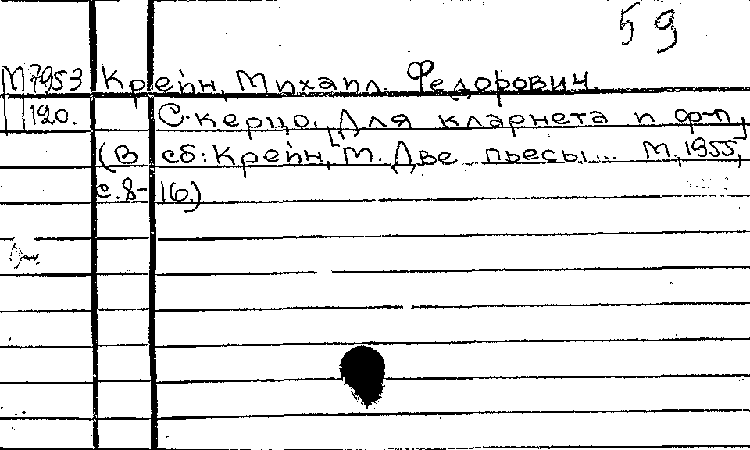 59
М7953 Крейн, Михаил Федорович.
120. Скерцо. [Для кларнета и ф-п.]
(В сб: Крейн, М. Две пьесы... М, 1955,
с. 8-16.)